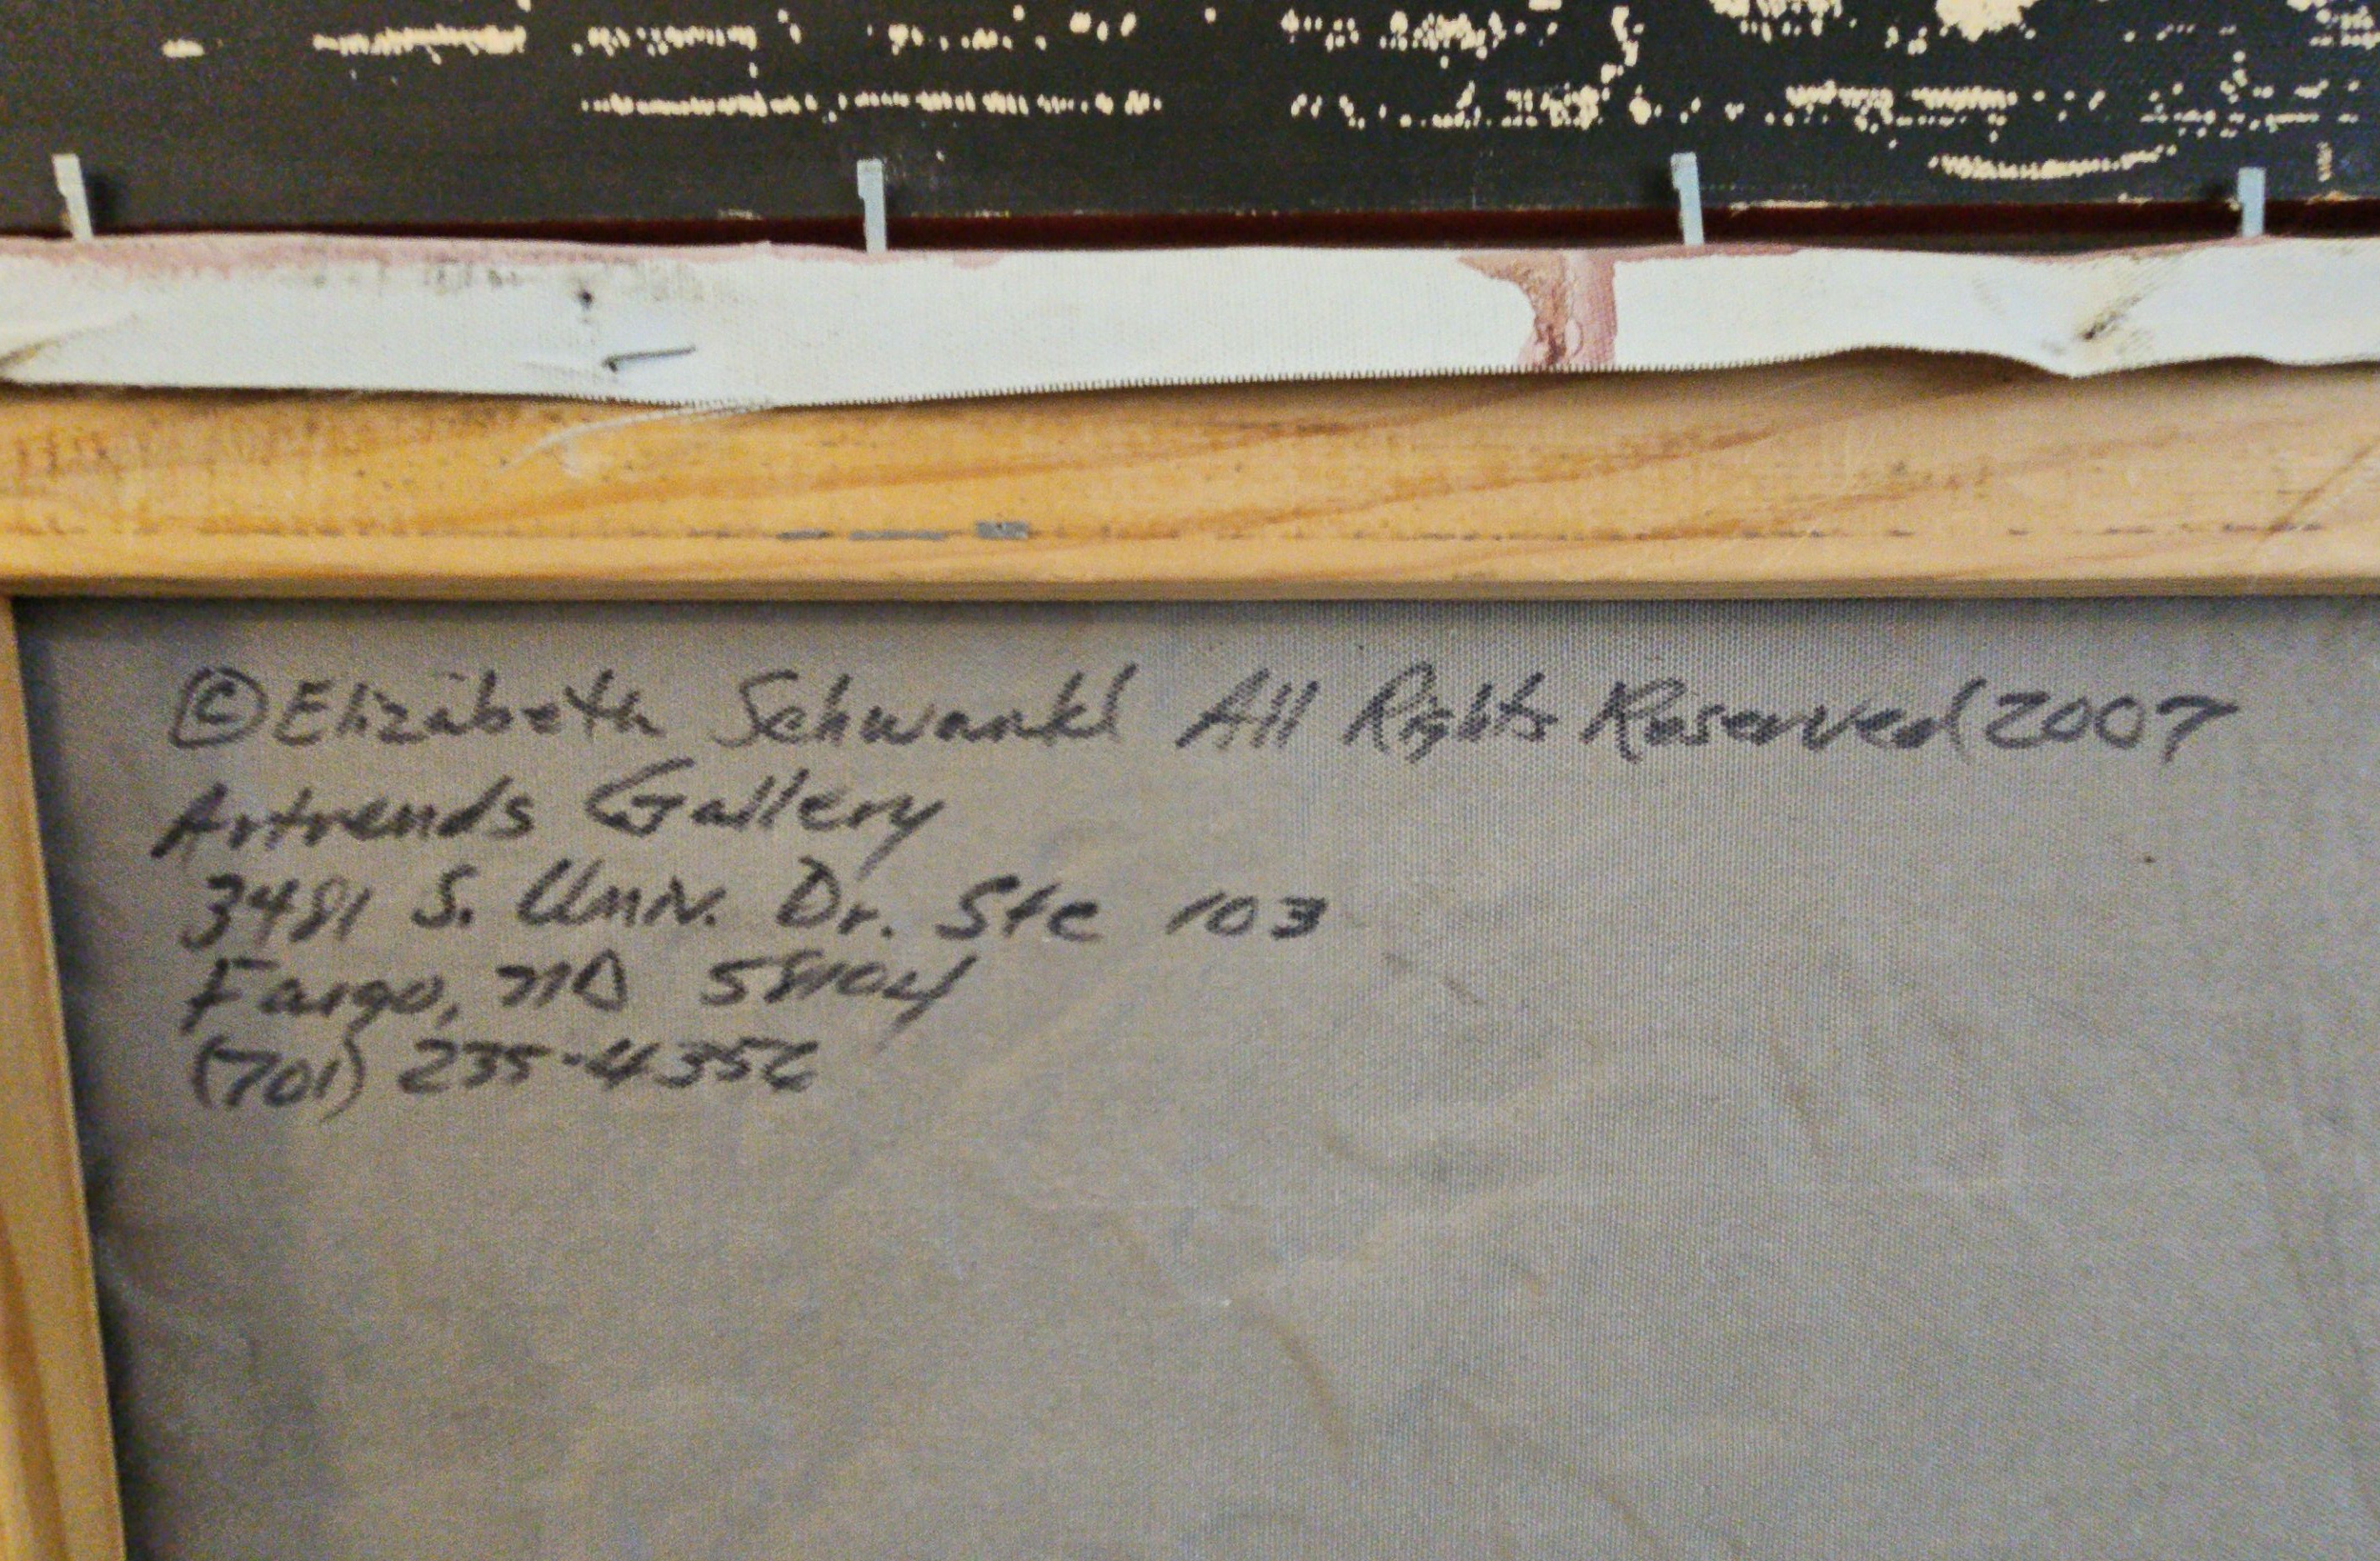 ©Elizabeth Schwankl All Rights Reserved 2007
Artrends Gallery
3481 S. Univ. Dr. Ste 103
Fargo, ND 58104
(701) 235-4356